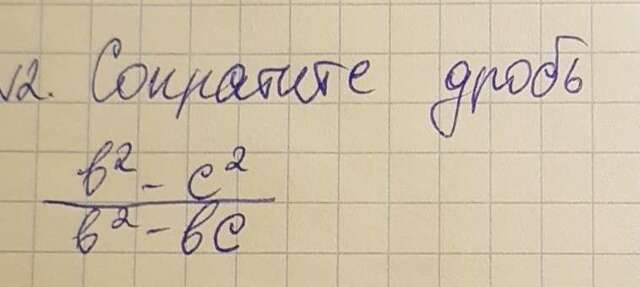 √2. Сократите дробь
b² - c²
b² - bc